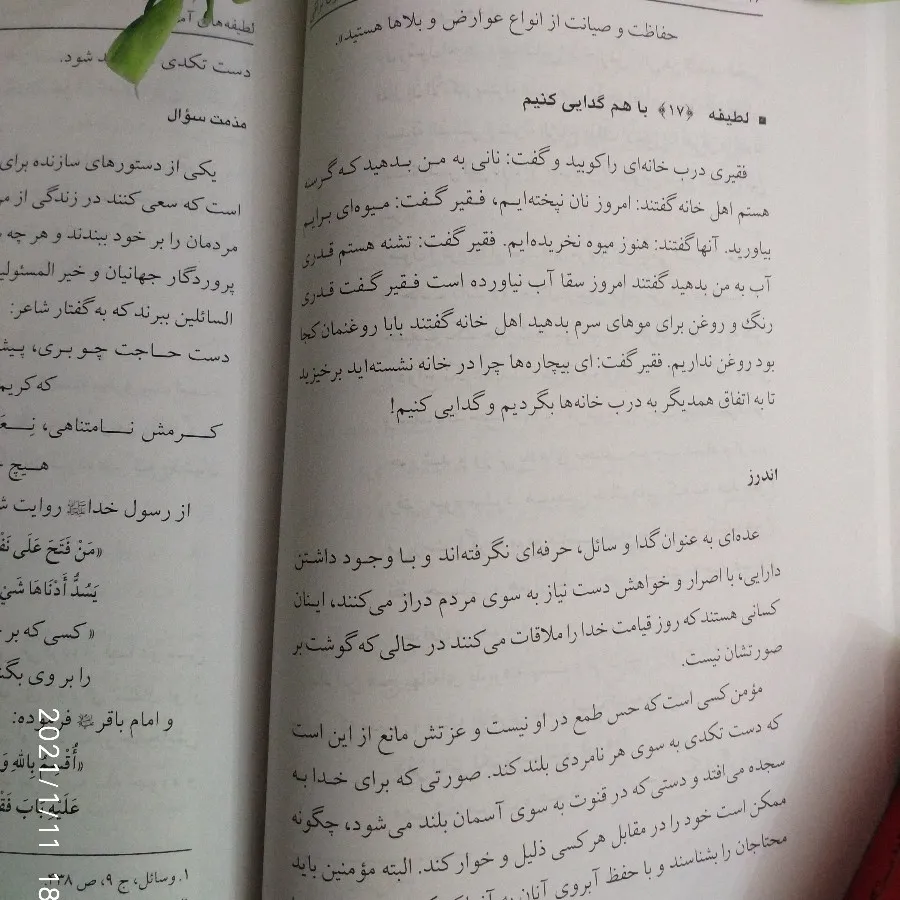 حفاظت و صیانت از انواع عوارض و بلاها هستید».
■ لطیفه ﴿۱۷﴾ با هم گدایی کنیم
فقیری درب خانه‌ای را کوبید و گفت: نانی به من بدهید که گرسنه
هستم اهل خانه گفتند: امروز نان نپخته‌ایم، فقیر گفت: میوه‌ای برایم
بیاورید. آنها گفتند: هنوز میوه نخریده‌ایم. فقیر گفت: تشنه هستم قدری
آب به من بدهید گفتند امروز سقا آب نیاورده است فقیر گفت قدری
رنگ و روغن برای موهای سرم بدهید اهل خانه گفتند بابا روغنمان کجا
بود روغن نداریم. فقیر گفت: ای بیچاره‌ها چرا در خانه نشسته‌اید برخیزید
تا به اتفاق همدیگر به درب خانه‌ها بگردیم و گدایی کنیم!
اندرز
عده‌ای به عنوان گدا و سائل، حرفه‌ای نگرفته‌اند و با وجود داشتن
دارایی، با اصرار و خواهش دست نیاز به سوی مردم دراز می‌کنند، اینان
کسانی هستند که روز قیامت خدا را ملاقات می‌کنند در حالی که گوشت بر
صورتشان نیست.
مؤمن کسی است که حس طمع در او نیست و عزتش مانع از این است
که دست تکدی به سوی هر نامردی بلند کند. صورتی که برای خدا به
سجده می‌افتد و دستی که در قنوت به سوی آسمان بلند می‌شود، چگونه
ممکن است خود را در مقابل هر کسی ذلیل و خوار کند. البته مؤمنین باید
محتاجان را بشناسند و با حفظ آبروی آنان به
لطیفه‌های
دست تکدی شود.
مذمت سؤال
یکی از دستورهای سازنده برای
است که سعی کنند در زندگی از
مردمان را بر خود ببندند و هر چه
پروردگار جهانیان و خیر المسئولین
السائلین ببرند که به گفتار شاعر:
دست حاجت چو بری، پیش
که کریم
کرمش نامتناهی،
هیچ
از رسول خداﷺ روایت
«مَنْ فَتَحَ عَلَی
یَسُدُّ أَدْنَاهَا
«کسی که بر
را بر روی
و امام باقر فرموده:
«أُقْسِمُ بِاللهِ
عَلَیْهِ بَابَ
۱. وسائل، ج ۹، ص ۴۳۸.
2021/1/11 18